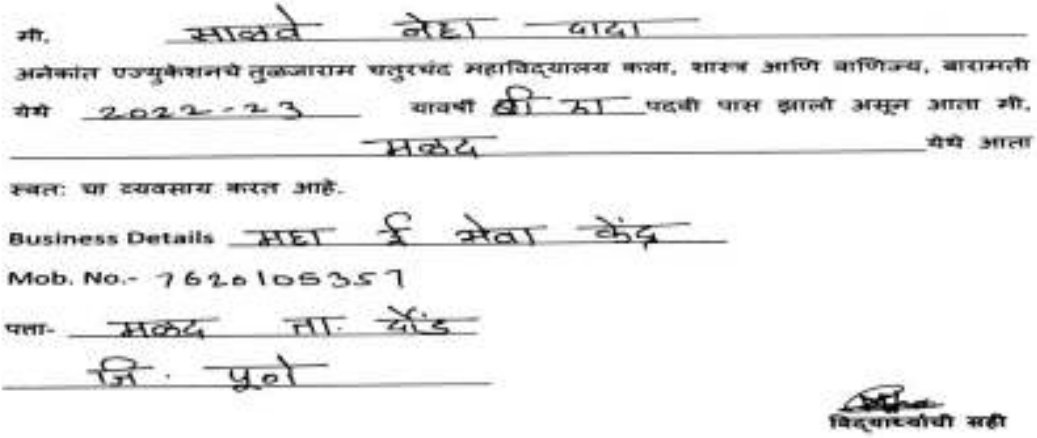 मी, साळवे नेहा दादा
अनेकांत एज्युकेशनचे तुळजाराम चतुरचंद महाविद्यालय कला, शास्त्र आणि वाणिज्य, बारामती
येथे 2022-23 यावर्षी बी ए पदवी पास झालो असून आता मी,
मळद येथे आता
स्वतः चा व्यवसाय करत आहे.
Business Details महा ई सेवा केंद्र
Mob. No.- 7620105357
पत्ता- मळद ता. दौंड
जि. पूणे
विद्यार्थ्याची सही